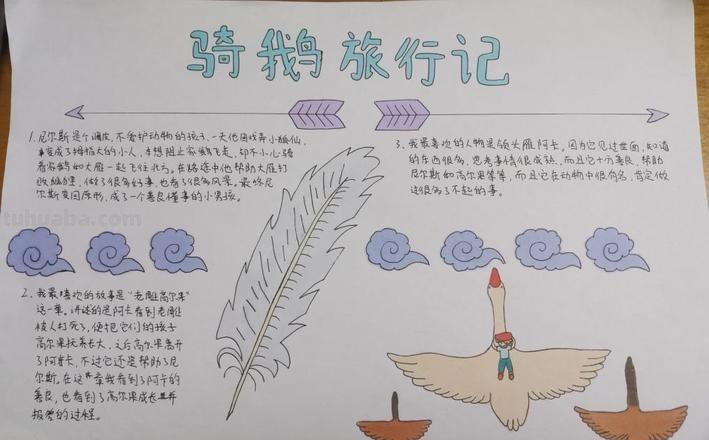 骑鹅旅行记
1. 尼尔斯是个调皮、不爱护动物的孩子、一天他因戏弄小狐仙,
变成了拇指大的小人,为想阻止家鹅飞走,却不小心骑
着家鹅和大雁一起飞往北方。在路途中他帮助大雁打
败狐狸,做了很多好事,也看了很多风景。最终尼
尔斯变回原形,成了一个善良懂事的小男孩。
2、我最喜欢的故事是“老雕高尔果”
这一章。讲述的是阿卡看到老雕
被人打死了,便把它们的孩子
高尔果抚养长大,之后高尔果离开
了阿卡,不过它还是帮助了尼
尔斯。在这一章我看到了阿卡的
善良,也看到了高尔果成长并
报恩的过程。
3、我最喜欢的人物是领头雁阿卡。因为它见过世面,知道
的东西很多,思考事情很成熟,而且它十分善良,帮助
尼尔斯和高尔果等等,而且它在动物中很有名,肯定做
过很多了不起的事。
tuhuaba.com